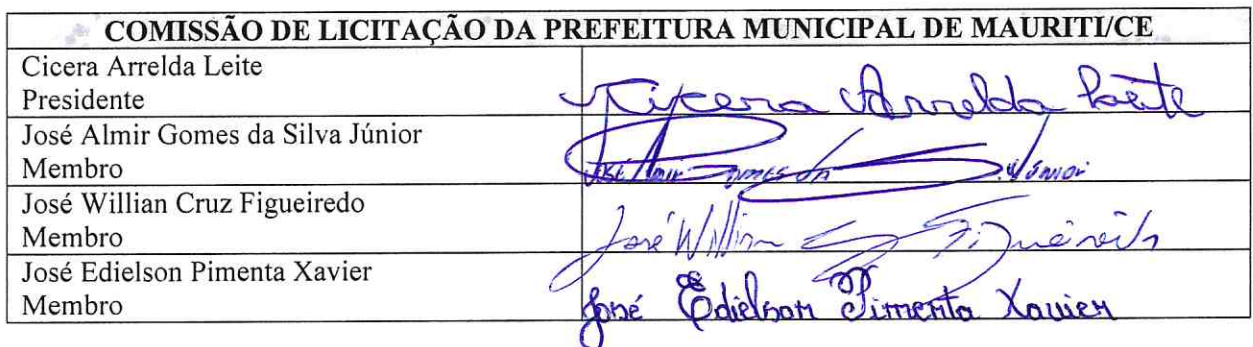 COMISSÃO DE LICITAÇÃO DA PREFEITURA MUNICIPAL DE MAURITI/CE
Cicera Arrelda Leite
Presidente
Cicera Arrelda Leite
José Almir Gomes da Silva Júnior
Membro
José Almir Gomes da S. Júnior
José Willian Cruz Figueiredo
Membro
José Willian Cruz Figueiredo
José Edielson Pimenta Xavier
Membro
José Edielson Pimenta Xavier